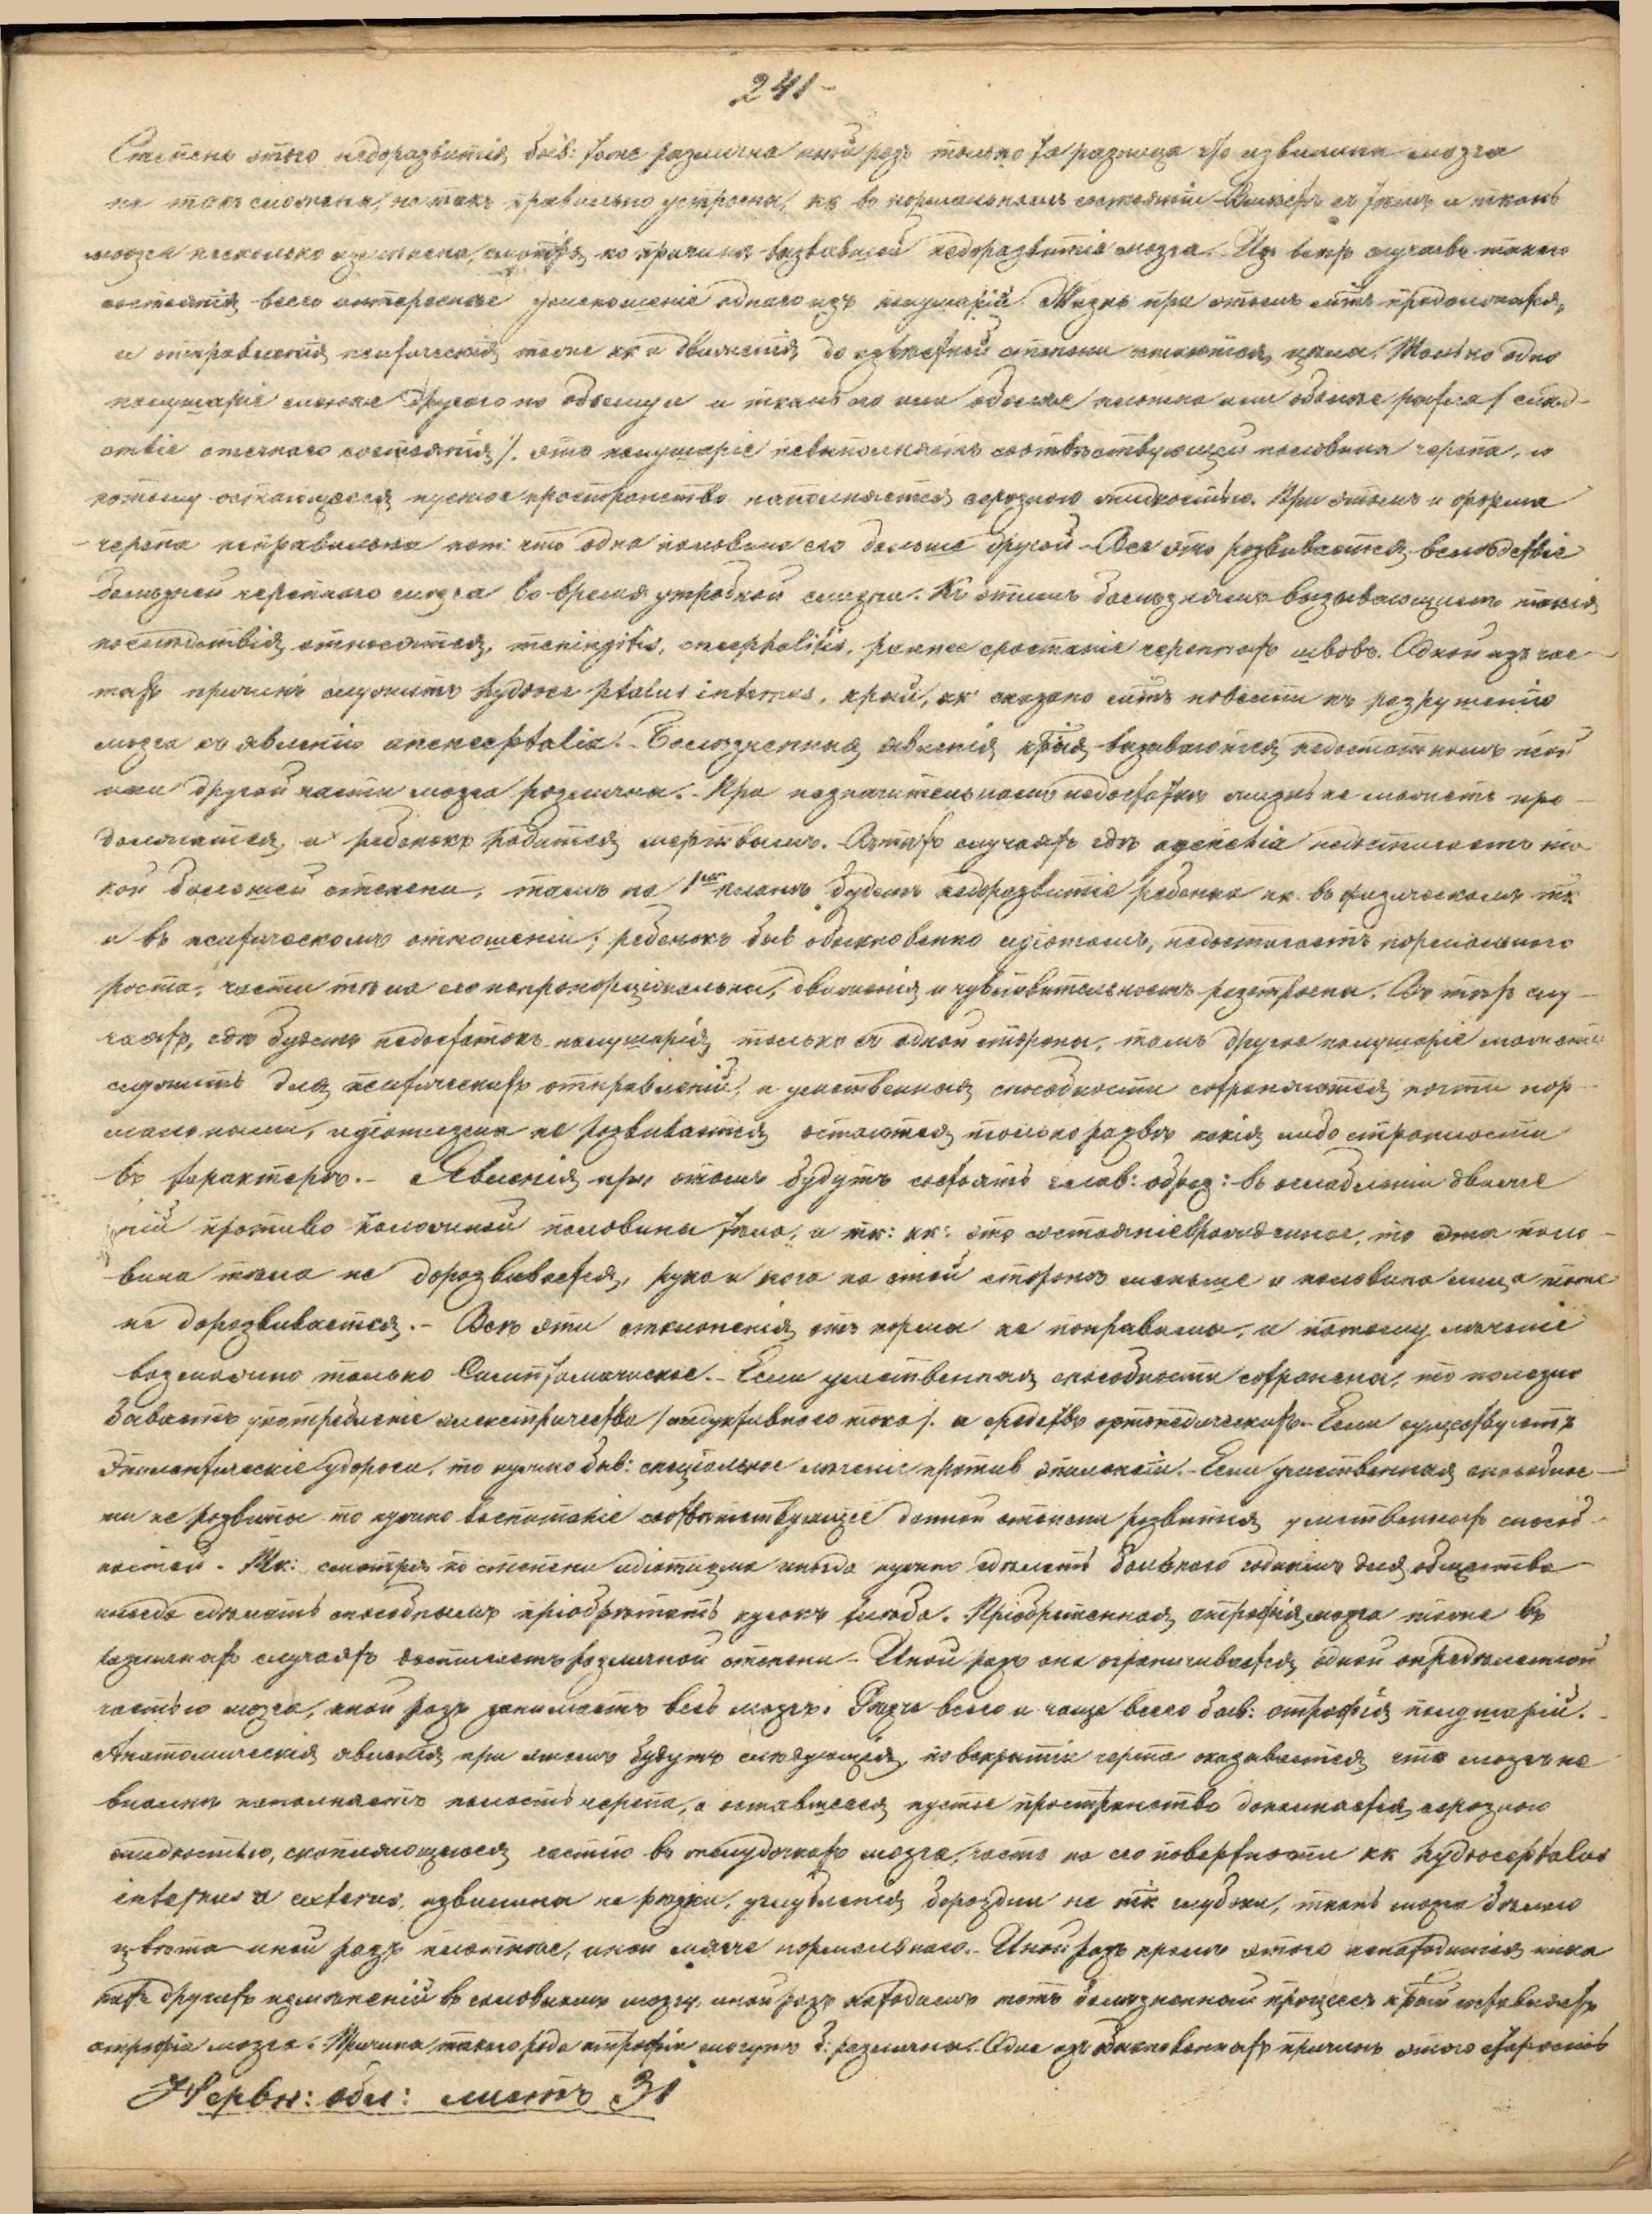 241-
Степень этого недоразвитія быв: тоже различна иной разъ только та разница что извилины мозга
не такъ сложены, не такъ правильно устроены, кк въ нормальномъ состояніи Вмѣстѣ съ тѣмъ и ткань
мозга несколько измѣнена, смотря по причинѣ вызвавшей недоразвитіе мозга. Изъ всѣхъ случаевъ такого
состоянія всего интереснѣе уменьшеніе одного изъ полушарій. Жизнь при этомъ можетъ продолжаться,
и отправленія психическія, также кк и движенія, до извѣстной степени остаются цѣлы. Только одно
полушаріе менѣе другого по объему и ткань его или обычно плотна или обычно рыхла (слѣд-
ствіе отечнаго состоянія). это полушаріе невыполняетъ соотвѣтствующей половины черепа, и
потому оставшееся пустое пространство наполняется серозною жидкостью. При этомъ и форма
черепа неправильна пот: что одна половина его больше другой - Все это развивается вслѣдствіе
болѣзней черепного мозга во время утробной жизни. Къ этимъ болѣзнямъ вызывающимъ такія
послѣдствія, относятся, meningitis, encephalitis, раннее сростаніе черепныхъ швовъ. Одной изъ час-
тыхъ причинъ служитъ hydrocephalus internus, крый, кк сказано можетъ повести къ разрушенію
мозга съ явленію anencephalia. - Болѣзненныя явленія крыя вызываются недостаткомъ той
или другой части мозга различны. - При значительномъ недостаткѣ жизнь не можетъ про-
должаться, и ребенокъ родится мертвымъ. Въ тѣхъ случаяхъ гдѣ agenesia недостигаетъ та
кой большей степени, тамъ на 1мъ планѣ будетъ недоразвитіе ребенка кк въ физическомъ тк
и въ психическомъ отношеніи; ребенокъ быв обыкновенно идіотомъ, недостигаетъ нормальнаго
роста, части тѣла его непропорціональны, движенія и чувствительность разстроены. Въ тѣхъ слу-
чаяхъ, гдѣ будетъ недостатокъ полушарія только съ одной стороны, тамъ другое полушаріе можетъ
служить для психическихъ отправленій, и умственныя способности сохраняются почти нор-
мальными, идіотизма не развивается остаются только развѣ какія либо странности
въ характерѣ. - Явленія при этомъ будутъ состоять глав: образ: въ ослабленіи движе
ній противо положной половины тѣла, и тк: кк: это состояніе врожденное, то эта поло-
вина тѣла не доразвивается, рука и нога на этой сторонѣ меньше и половина лица тоже
не доразвивается. - Всѣ эти отклоненія отъ нормы не поправимы, и потому лѣченіе
возможно только Симптоматическое. - Если умственныя способности сохранены, то полезно
бываетъ употребленіе электричества (индуктивного тока). и средствъ ортопедическихъ. - Если существуютъ
Эпилептическіе удороги, то нужно быв: спеціальное лѣченіе против эпилепсіи. - Если умственныя способнос-
ти не развиты то нужно воспитаніе соотвѣтствующее данной степени развитія умственныхъ способ-
ностей. - Тк: смотря по степени идіотизма иногда нужно сдѣлать больного годнымъ для общества
иногда сдѣлать способнымъ пріобрѣтать кусокъ хлѣба. Пріобрѣтенная атрофія мозга тоже въ
различныхъ случаяхъ достигаетъ различной степени - Иной разъ она ограничивается одной опредѣленной
частью мозга, иной разъ занимаетъ весь мозгъ. всего и чаще всего быв: атрофія полушарій. -
Анатомическія явленія при этомъ будутъ слѣдующія, по вскрытіи черепа оказывается что мозгъ не
вполнѣ наполняетъ полость черепа, а оставшееся пустое пространство дополняется серозною
жидкостью, скопляющеюся частію въ желудочкахъ мозга, часть на его поверхности кк hydrocephalus
internus и externus, извилины не рѣзки, углубленія бороздки не тк глубоки, ткань мозга бѣлаго
цвѣта иной разъ плотнѣе, иной мягче нормальнаго. - Иной разъ кромѣ этого ненаходится ника
кихъ другихъ измѣненій въ головномъ мозгу, иной разъ находимъ тотъ болѣзненный процессъ крый
атрофіи мозга. Причины такого рода атрофіи могутъ б: различны. - Одна изъ обыкновенныхъ причинъ этого старость
Нервн: обл: листъ 31